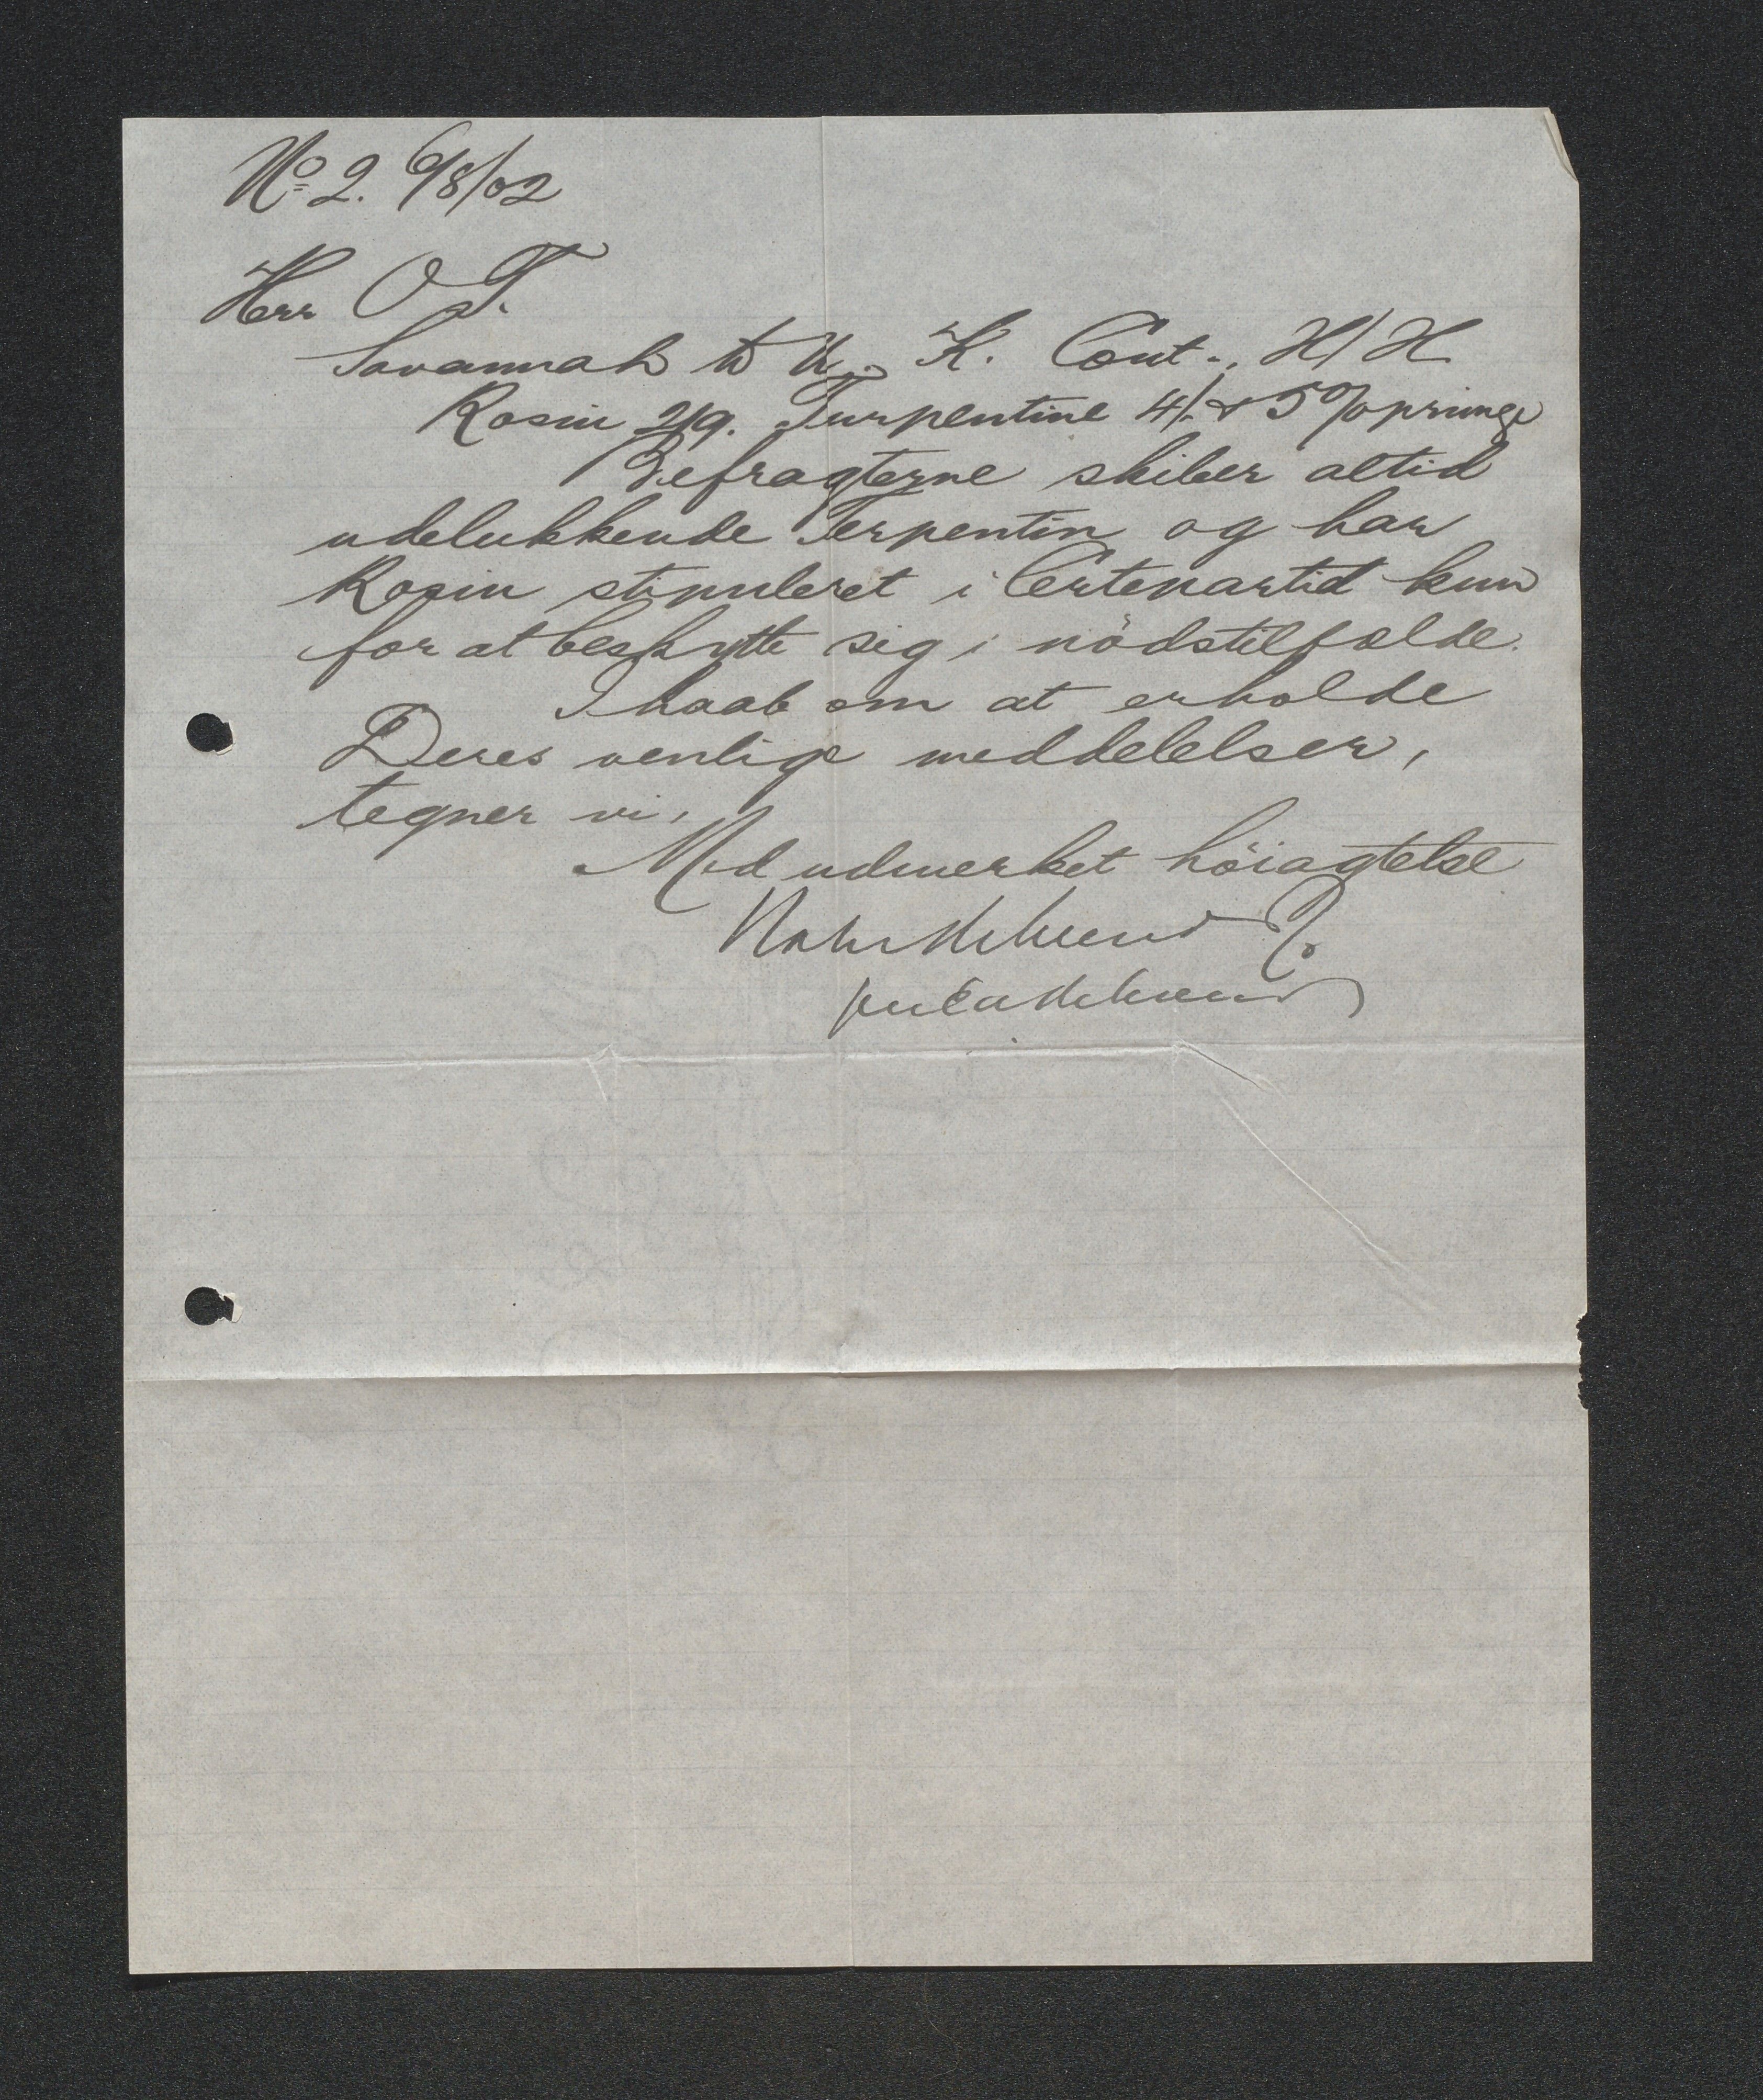 No 2. 6/8/02
Herr O. T.
Savannah to U. K. Cont., H/H
Rosin 2/9. Turpentine 4/- & 5% primage
Befragterne skiber altid
udelukkende Terpentin og har
Rosin stipuleret i Certepartid kun
for at beskytte sig i nödstilfælde.
I haab om at erholde
Deres venlige meddelelser,
tegner vi,
Med udmerket höiagtelse